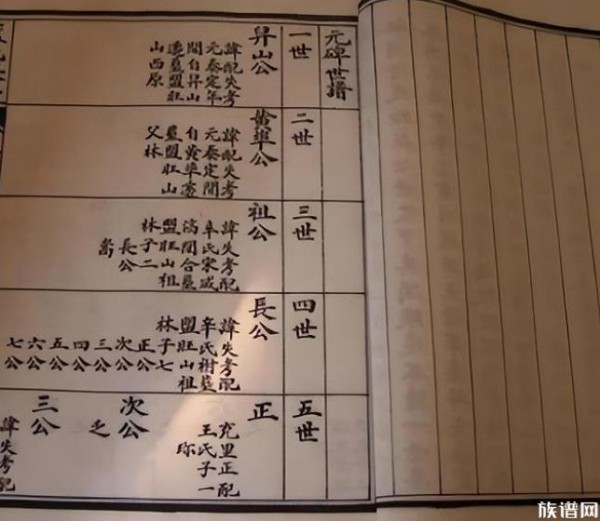 元碑世譜
一世
昇山公
諱配失考
元泰定年
間自昇山
遷墓盟旺
山西原
二世
黄埠公
諱配失考
元泰定間
自黄埠遷
墓盟旺山
父林
三世
祖公
諱失考配
辛氏宋咸
淳間合墓
盟旺山祖
林子二
長公
嵩
四世
長公
諱失考配
辛氏祔墓
盟旺山祖
林子七
正公
次公
三公
四公
五公
六公
七公
五世
正
充里正配
王氏子一
珎
次公
乏
三公
諱失考配
族谱网